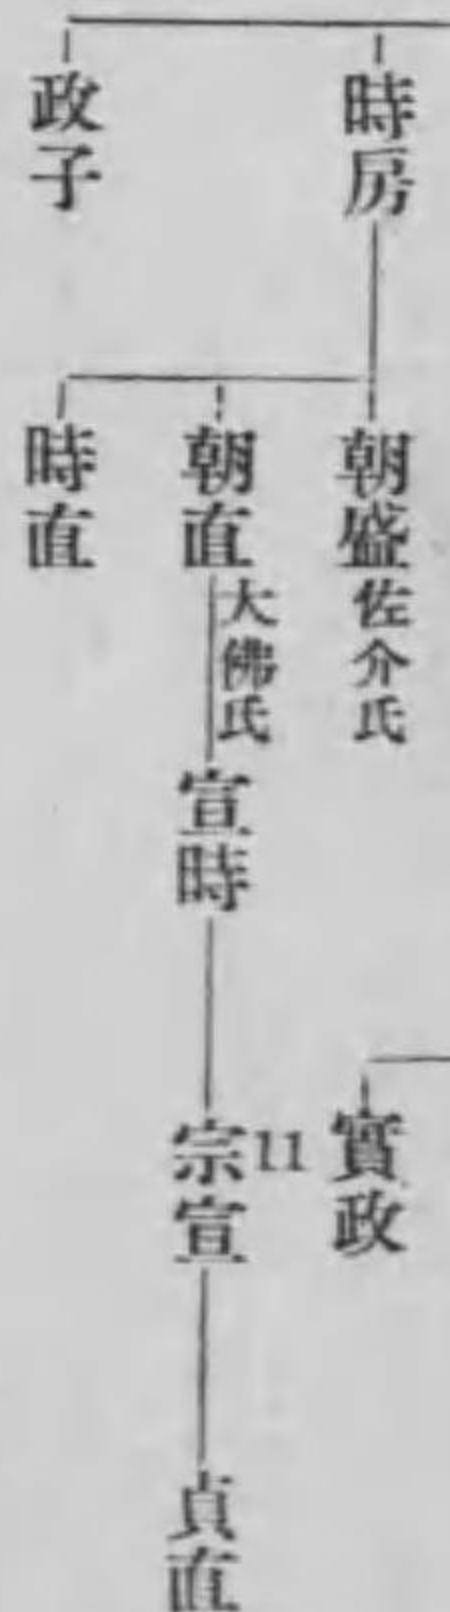 時房
政子
朝盛 佐介氏
朝直 大佛氏
時直
宣時
實政
11
宗宣
貞直